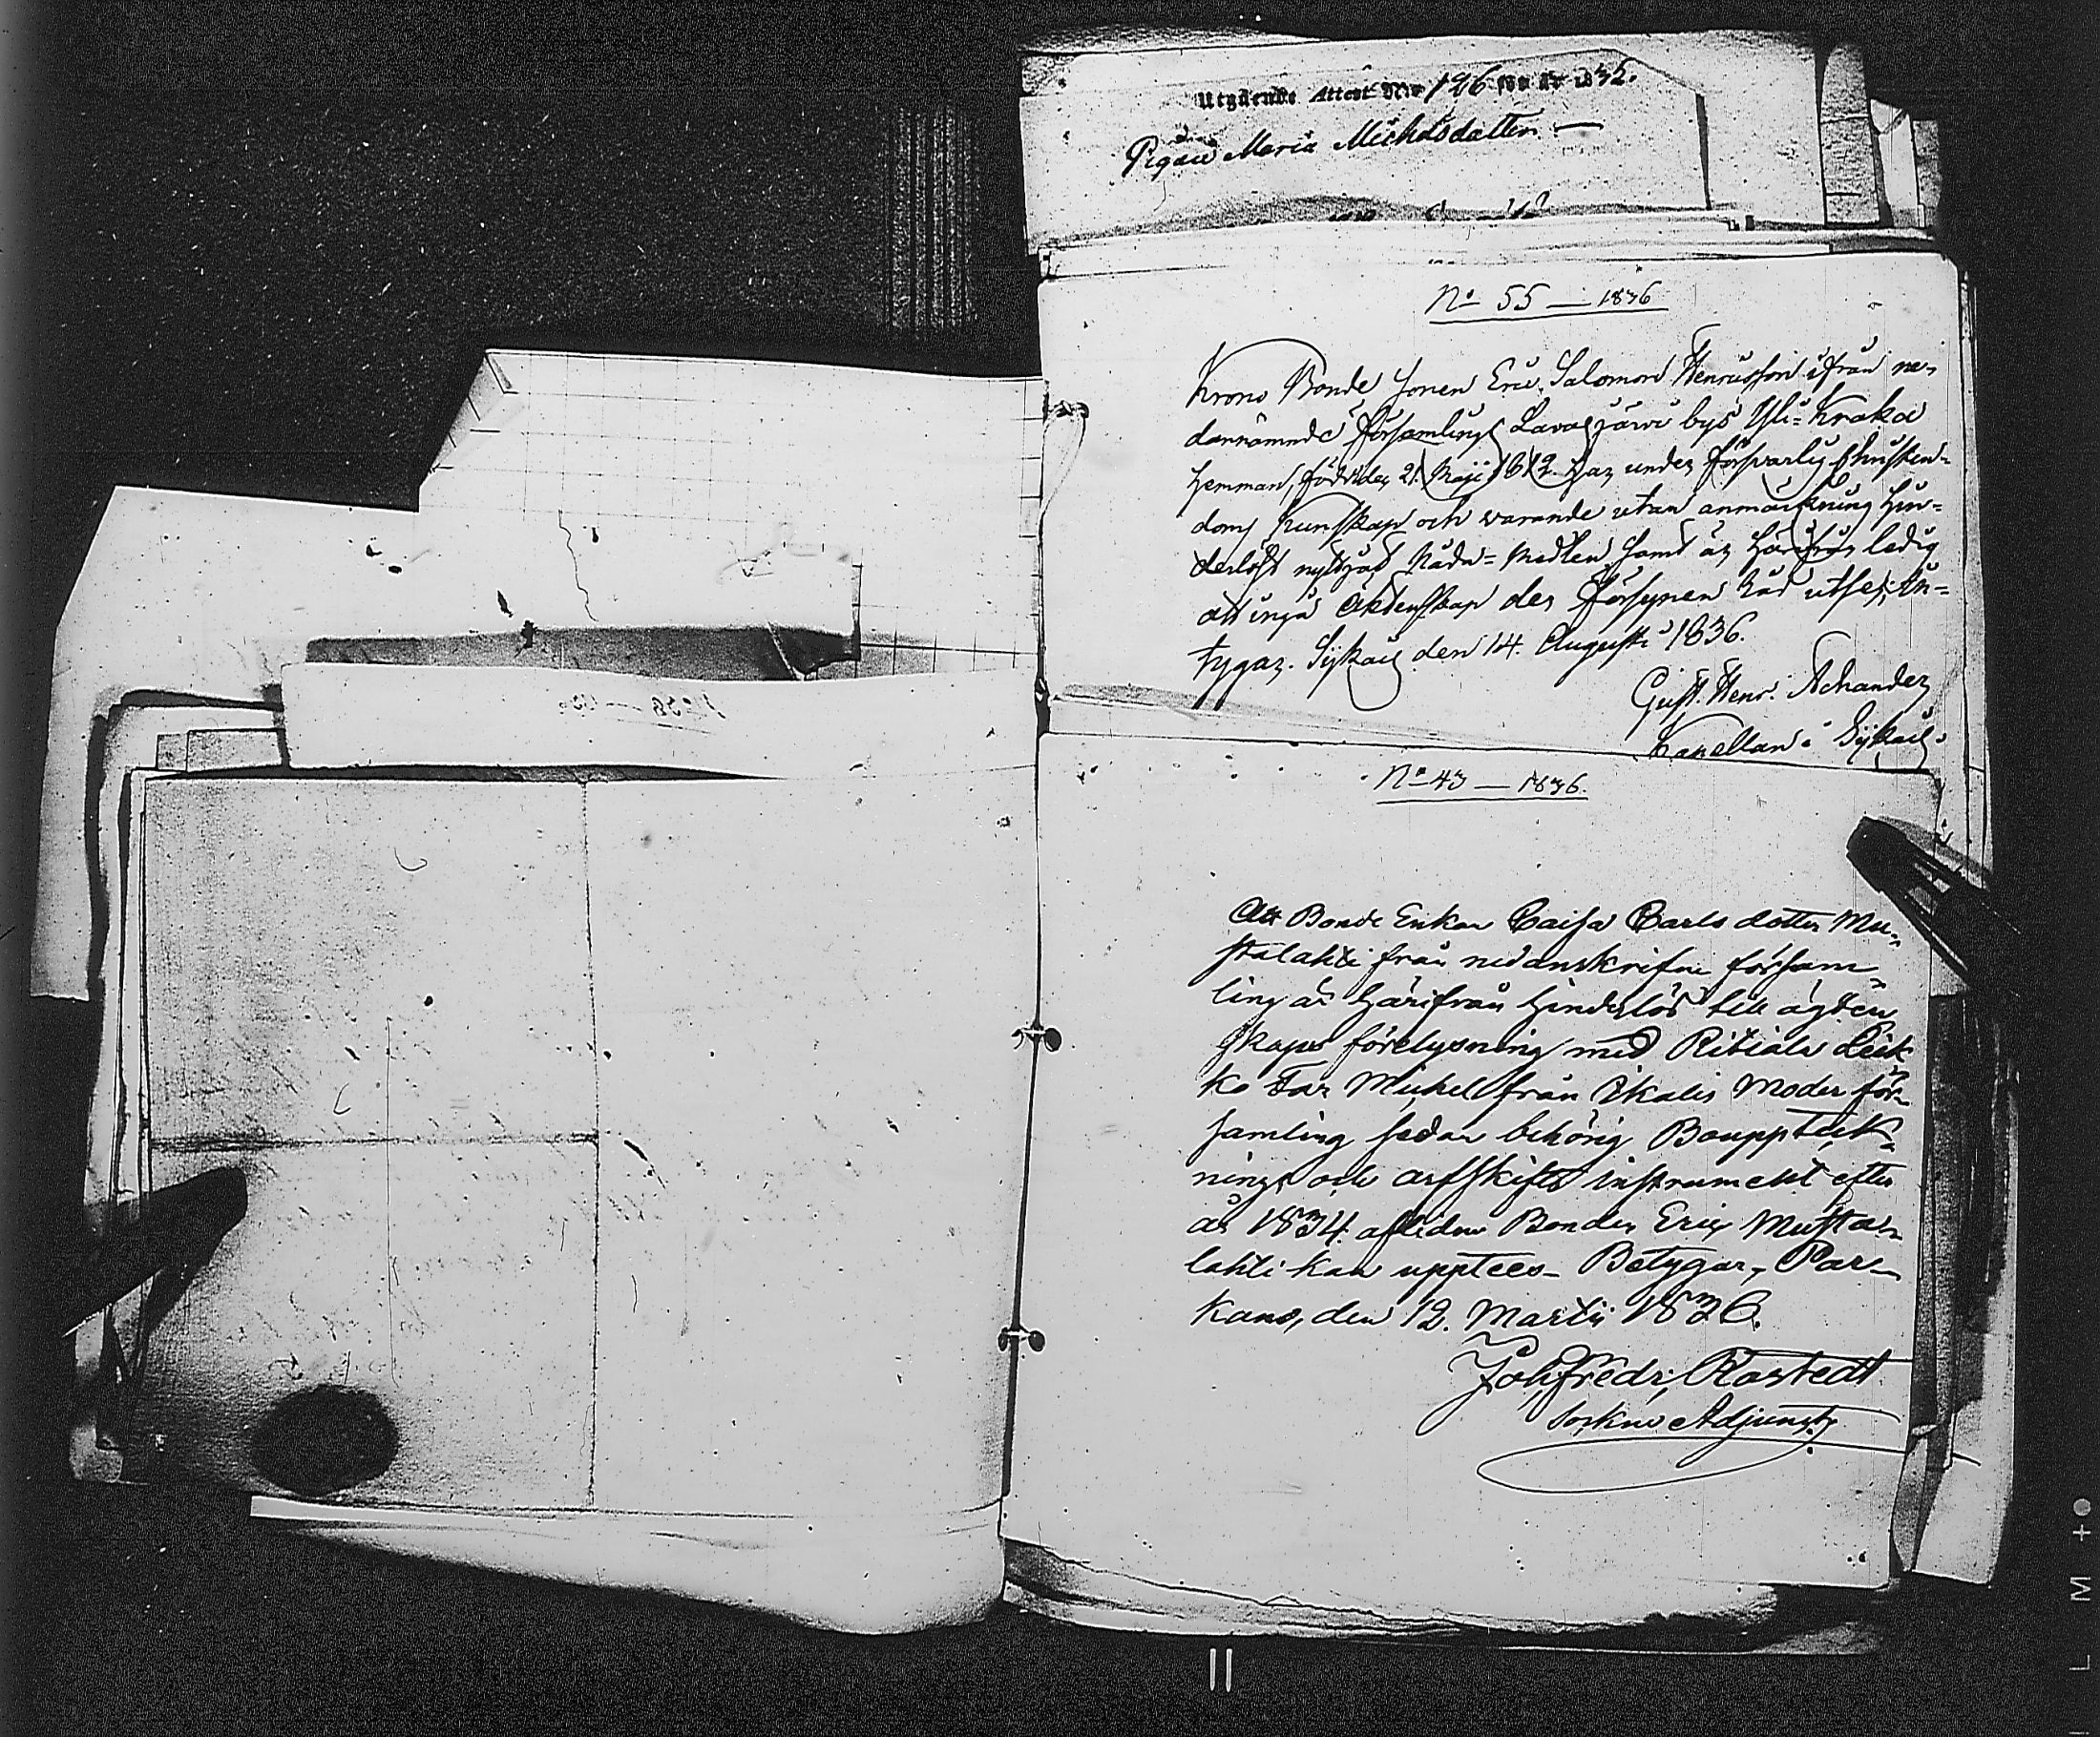 Utgående Attest No 126 för År 1835.
Pigan Maria Michelsdotter —
No 55 — 1836
Krono Bonde Sonen Eric Salomon Henricsson ifrån ne-
dannämnde församlings Lavajärwi bys Yli-Kraka
Hemman, född den 21 Maji 1812. Har under försvarlig Christen-
doms Kunskap och warande utan anmärkning Hin-
derlöst nyttjat Nåda-Medlen, samt är Härifrån ledig
att ingå Äktenskap der Försynen Råd utser; Be-
tygar. Sijkais den 14. Augusti 1836.
Gust. Henr. Achander
Kapellan i Sijkais.
No 43 — 1836.
Att Bonde Enkan Caisa Carls dotter Mu-
stalahti från nedanskrifne försam-
ling är härifrån hinderlös till ägten
skaps förelysning med Ritiala Leik
ko Far Michel från Ikalis Moder för-
samling sedan behörig Bouppteck-
nings och arfskiftes instrument efter
år 1834. afledne Bonden Eric Musta-
lahti kan uppte̥es - Betygar, Par-
kano, den 12. Martii 1836.
Joh. Fredr. Rostedt
Sockne Adjunct.